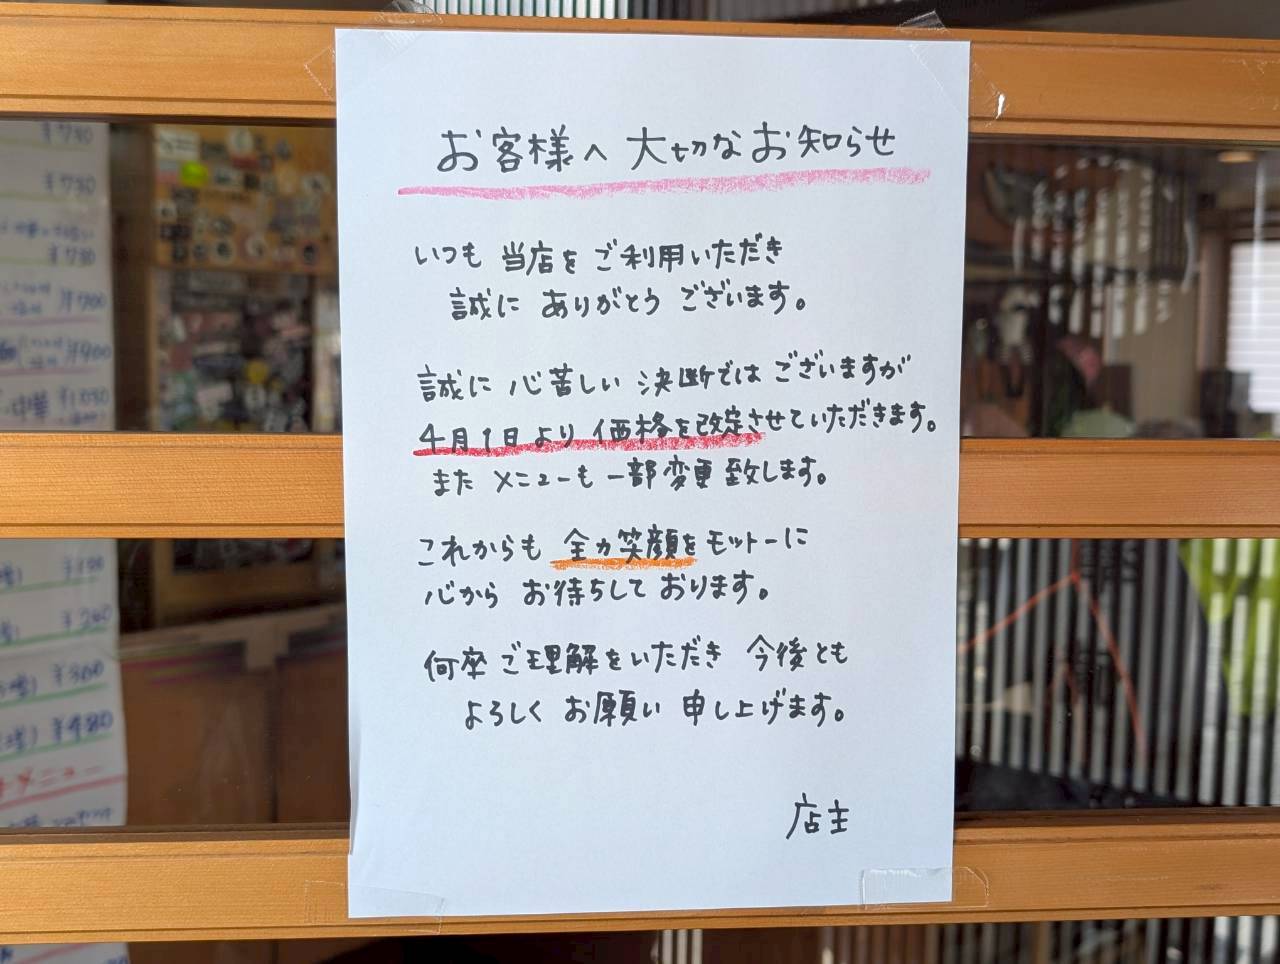 お客様へ 大切なお知らせ
いつも 当店を ご利用いただき
誠に ありがとう ございます。
誠に 心苦しい 決断では ございますが
4月1日より 価格を改定させていただきます。
また メニューも 一部変更致します。
これからも 全力笑顔を モットーに
心から お待ちしております。
何卒 ご理解をいただき 今後とも
よろしく お願い 申し上げます。
店主
¥730
¥730
¥730
¥700
¥900
中華 ¥1030
¥100
¥260
¥300
¥480
メニュー